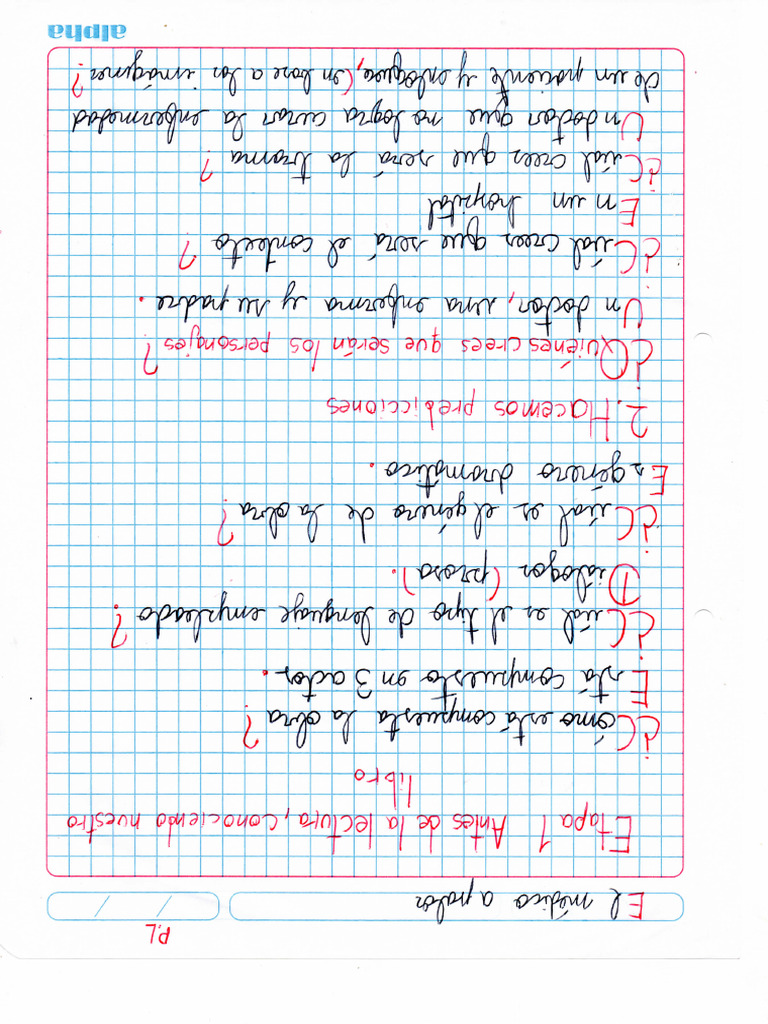 P.L
El médico a palos
Etapa 1 Antes de la lectura, conociendo nuestro
libro
¿Cómo está compuesta la obra?
Está compuesto en 3 actos.
¿Cúal es el tipo de lenguaje empleado?
Dialogos (prosa).
¿Cúal es el género de la obra?
Es género dramático.
2. Hacemos predicciones
¿Quiénes crees que serán los personajes?
Un doctor, una enferma y su padre.
¿Cúal crees que será el contecto?
En un hospital
¿Cúal crees que será la trama?
Un doctor que no logra curar la enfermedad
de un paciente y enloquece, (en base a las imágenes?
alpha